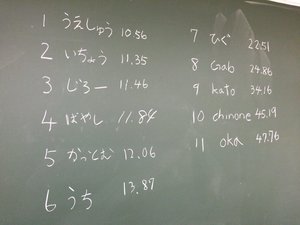 1 うえしゅう 10.56
2 いちゅう 11.35
3 じろー 11.46
4 ばやし 11.84
5 かっとむ 12.06
6 うち 13.87
7 ひぐ 22.51
8 Gab 24.86
9 kato 34.16
10 chinone 45.19
11 oka 47.76